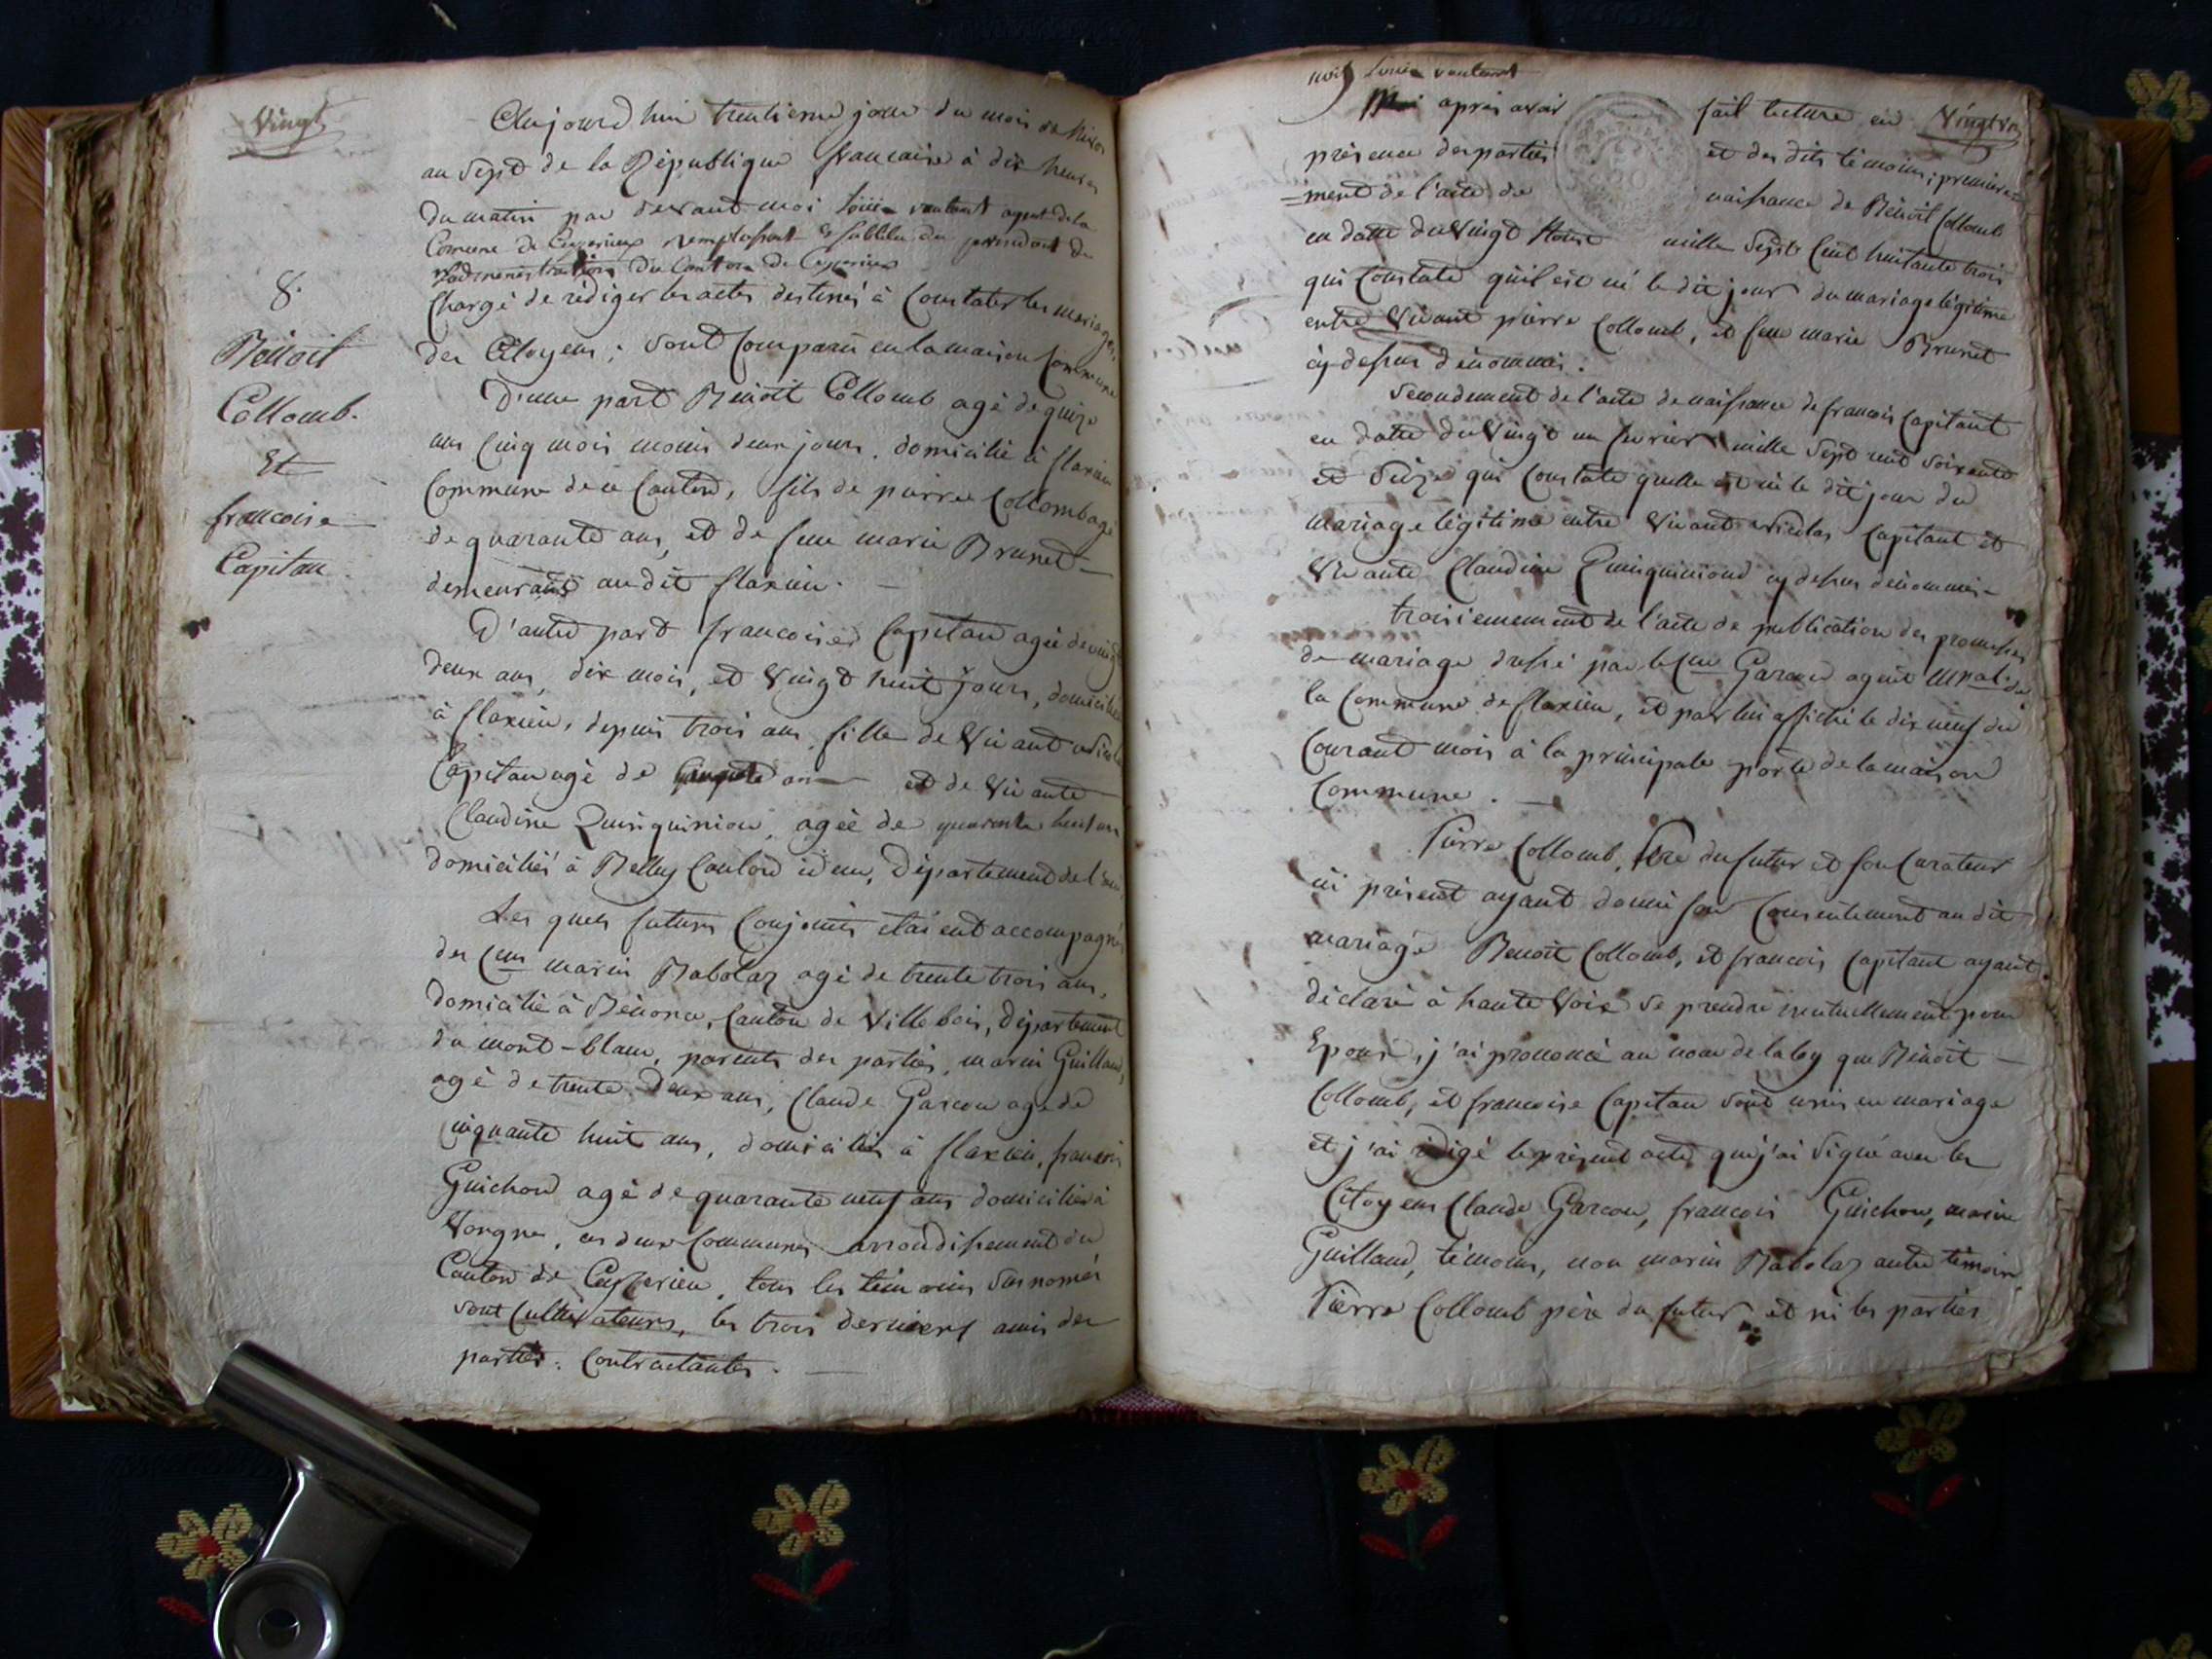 Vingt
Aujourd'hui trentieme jour du mois de Nivos
an Sept de la République francaise à dix heures
du matin par devant moi Louis vautaret agent de la
Comune de Ceyzerieux remplasant du president de
l'administration du Canton de Ceyzerieux
Chargé de rédiger les actes destinés à Constater les mariages
des Citoyens ; sont Comparu en la maison Commune
8.
Bénoit
Collomb.
Et
francoise
Capitan
D'une part Benoit Collomb agé de quize
ans Cinq mois moins deux jours, domicilié à flaxieu
Commune de ce Canton, fils de pierre Collomb agé
de quarante ans, et de feue marie Brunet
demeurant au dit flaxieu.
D'autre part francoise Capitan agée de vingt
deux ans, dix mois, et vingt huit jours, domiciliée
à flaxieu, depuis trois ans, fille de Vivant Nicolas
Capitan agé de ans et de Vivante
Claudine Quinquinion, agée de quarente huit ans
domiciliés à Belley Canton idem, Département de l'ain
Les quels futurs Conjoints etaient accompagnés
des Cens marin Rabolaz agé de trente trois ans,
domicilié à Canton de Villebois, département
du mont-blanc, parents des parties, marin Guilland,
agé de trente deux ans, Claude Garcon agé de
cinquante huit ans, domiciliés à flaxieu, francois
Guichon agé de quarante neuf ans domicilié à
Vongne, ces deux Communes arrondissement du
Canton de Ceyzerieu, tous les témoins susnomés
sont Cultivateurs, les trois derniers amis des
parties Contractantes.
moi Louis vautaret
après avoir fait lecture en
Vingt un
présence des parties et des dits témoins ; première=
=ment de l'acte de naissance de Bénoit Collomb
en datte du Vingt mille Sept Cent huitante trois
qui Constate qu'il est né le dit jour du mariage légitime
entre Vivant pierre Collomb, et feue marie Brunet
cy dessus dénommés.
Secondement de l'acte de naissance de francois Capitant
en datte du Vingt un fevrier mille Sept cent soixante
et Seize qui Constate qu'elle est née le dit jour du
mariage légitime entre Vivant Nicolas Capitant et
Vivante Claudine Quinquiniond cy dessus dénommés
troisiemement de l'acte de publication des promesses
de mariage dressé par le Cen Garcon agent mpal. de
la Commune de flaxieu, et par lui affiché le dix neuf du
Courant mois à la principale porte de la maison
Commune.
Pierre Collomb, Père du futur et son Curateur
ici présent ayant donné son Consentement au dit
mariage Benoit Collomb, et francois Capitant ayant
déclaré à haute Voix se prendre mutuellement pour
Epoux, j'ai prononcé au nom de la loy que Bénoit
Collomb, et francoise Capitan sont unis en mariage
et j'ai rédigé le présent acte que j'ai signé avec les
Citoyens Claude Garcon, francois Guichon, marin
Guilland, témoins, non marin Rabolaz autre témoin
Pierre Collomb père du futur et ni les parties